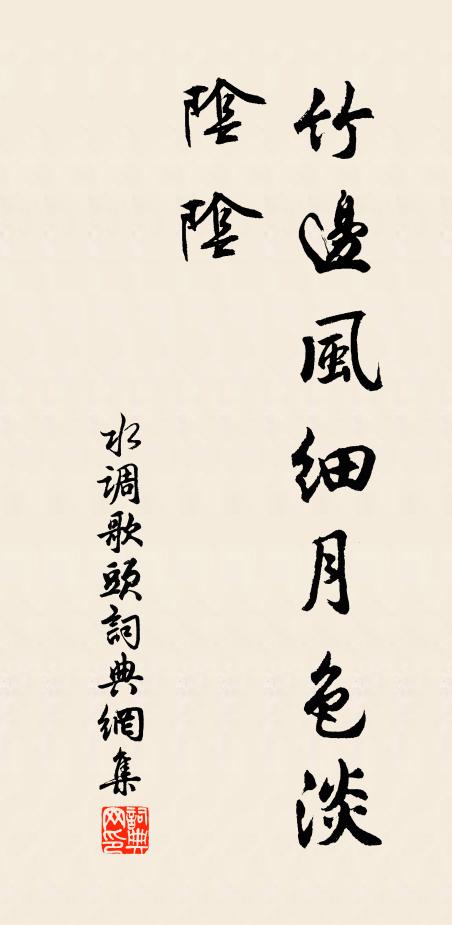 竹邊風細月色淡
陰陰
水调歌頭詞典網集
詞典
网印